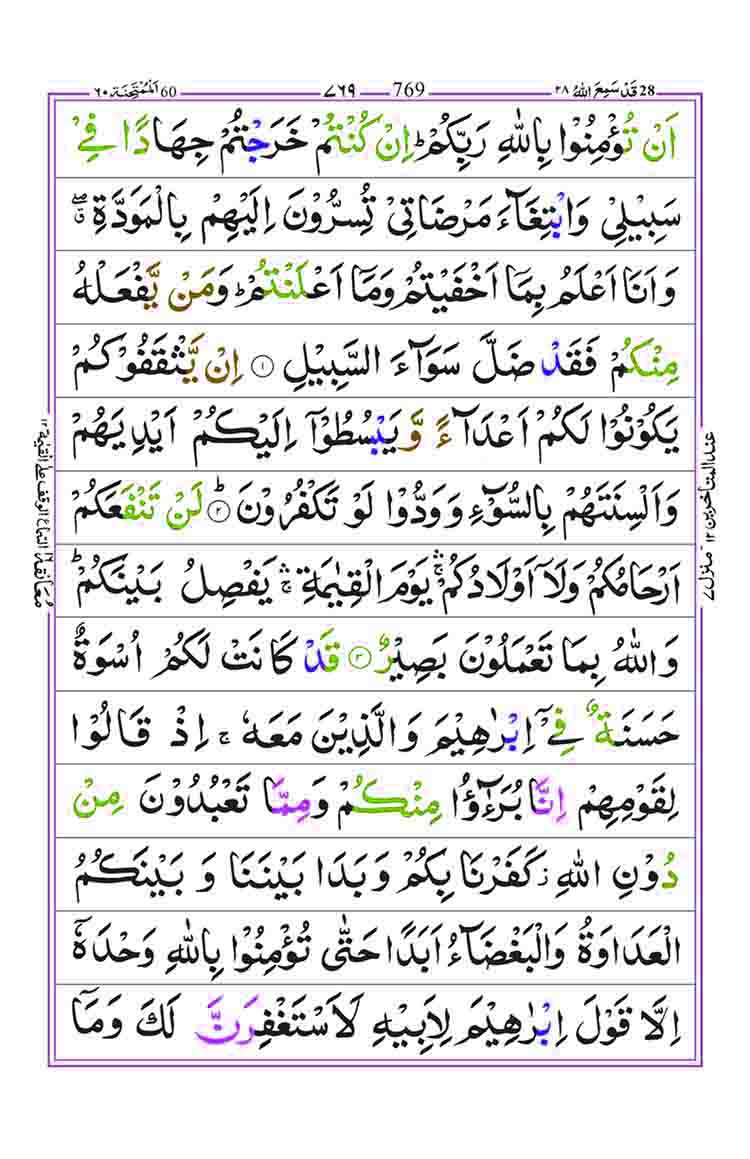 28 قَدْ سَمِعَ اللّٰهُ ٢٨ 769 ٧٦٩ 60 اَلْمُمْتَحِنَة ٦٠
اَنْ تُؤْمِنُوْا بِاللّٰهِ رَبِّكُمْ ؕ اِنْ كُنْتُمْ خَرَجْتُمْ جِهَادًا فِیْ
سَبِیْلِیْ وَابْتِغَآءَ مَرْضَاتِیْ تُسِرُّوْنَ اِلَیْهِمْ بِالْمَوَدَّةِ ۖۗ
وَاَنَا اَعْلَمُ بِمَاۤ اَخْفَیْتُمْ وَمَاۤ اَعْلَنْتُمْ ؕ وَمَنْ یَّفْعَلْهُ
مِنْكُمْ فَقَدْ ضَلَّ سَوَآءَ السَّبِیْلِ ۝۱ اِنْ یَّثْقَفُوْكُمْ
یَكُوْنُوْا لَكُمْ اَعْدَآءً وَّیَبْسُطُوْۤا اِلَیْكُمْ اَیْدِیَهُمْ
وَاَلْسِنَتَهُمْ بِالسُّوْٓءِ وَوَدُّوْا لَوْ تَكْفُرُوْنَ ۝۲ؕ لَنْ تَنْفَعَكُمْ
اَرْحَامُكُمْ وَلَاۤ اَوْلَادُكُمْ ۛۚ یَوْمَ الْقِیٰمَةِ ۛۚ یَفْصِلُ بَیْنَكُمْ ؕ
وَاللّٰهُ بِمَا تَعْمَلُوْنَ بَصِیْرٌ ۝۳ قَدْ كَانَتْ لَكُمْ اُسْوَةٌ
حَسَنَةٌ فِیْۤ اِبْرٰهِیْمَ وَالَّذِیْنَ مَعَهٗ ۚ اِذْ قَالُوْا
لِقَوْمِهِمْ اِنَّا بُرَءٰٓؤُا مِنْكُمْ وَمِمَّا تَعْبُدُوْنَ مِنْ
دُوْنِ اللّٰهِ ؗ كَفَرْنَا بِكُمْ وَبَدَا بَیْنَنَا وَبَیْنَكُمُ
الْعَدَاوَةُ وَالْبَغْضَآءُ اَبَدًا حَتّٰی تُؤْمِنُوْا بِاللّٰهِ وَحْدَهٗۤ
اِلَّا قَوْلَ اِبْرٰهِیْمَ لِاَبِیْهِ لَاَسْتَغْفِرَنَّ لَكَ وَمَاۤ
عند المتأخرين ١٢
منزل ٧
معانقة ١٦